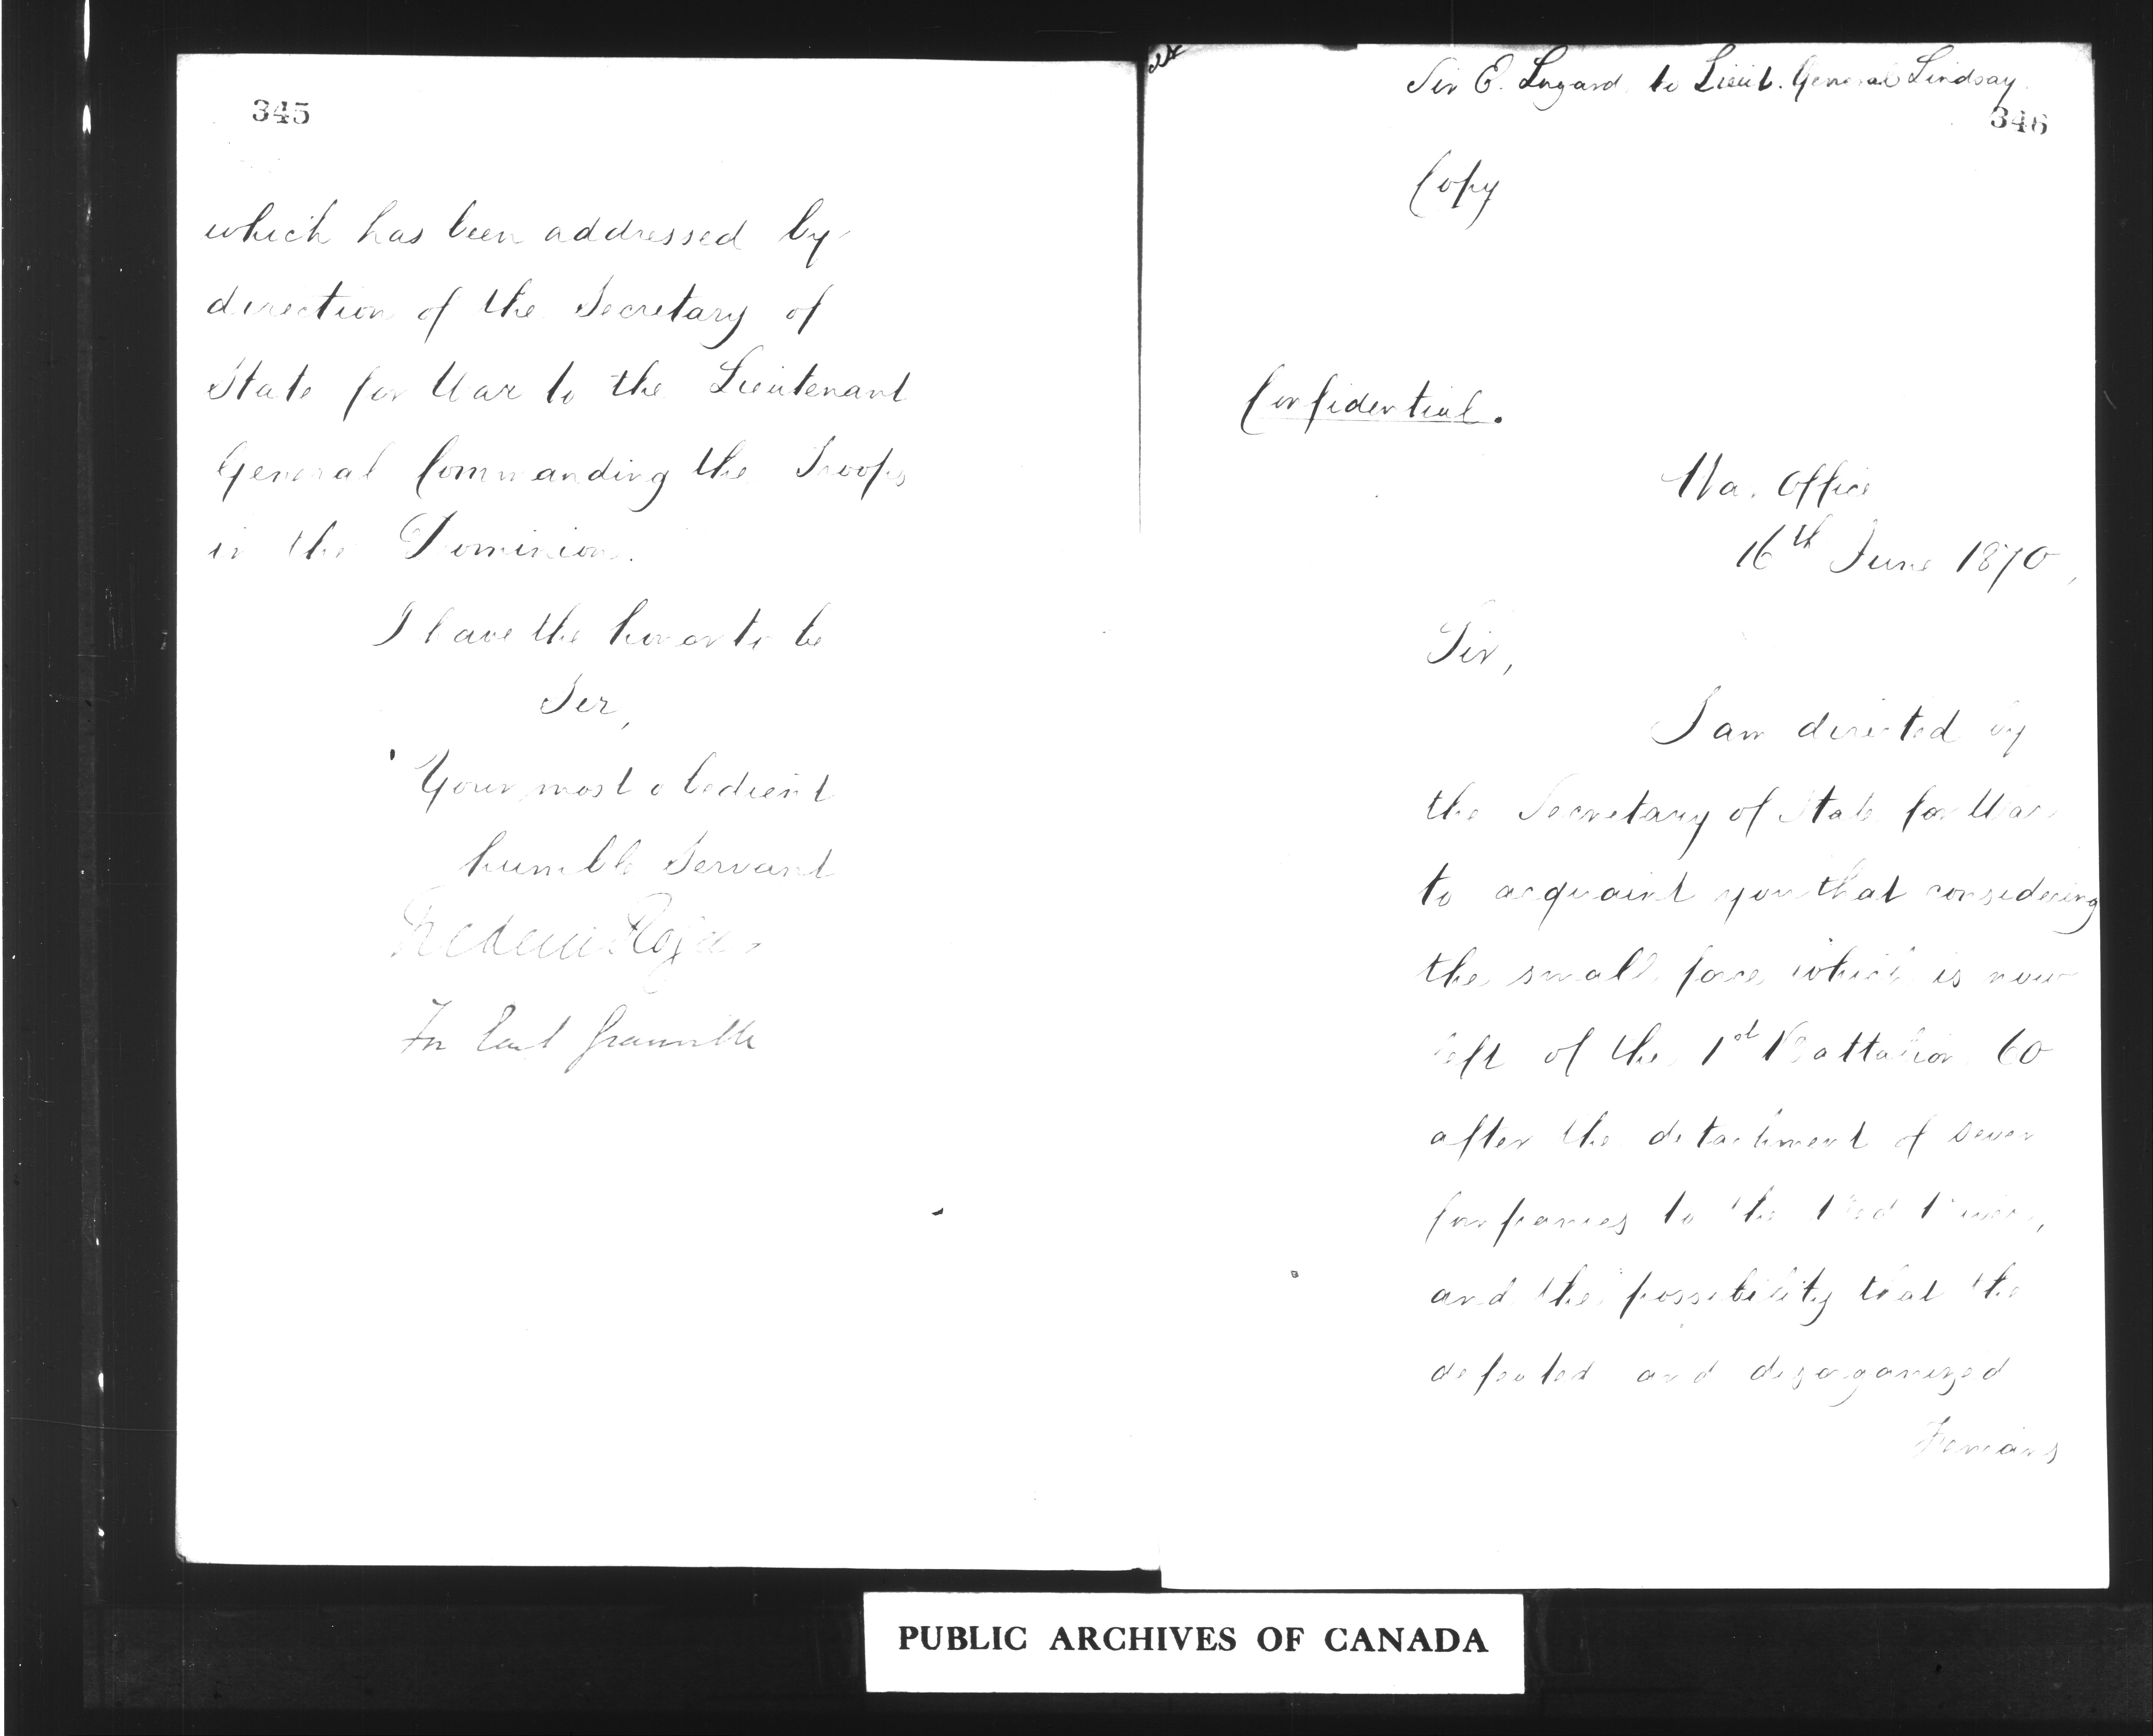 345
which has been addressed by
direction of the Secretary of
State for War to the Lieutenant
General Commanding the Troops
in the Dominion.
I have the honor to be
Sir,
Your most obedient
humble Servant
Frederic Rogers
For Earl Granville
Sir E. Lugard to Lieut. General Lindsay
346
Copy
Confidential.
War Office
16th June 1870,
Sir,
I am directed by
the Secretary of State for War
to acquaint you that considering
the small force which is now
left of the 1st Battalion 60
after the detachment of seven
Companies to the Red River,
and the possibility that the
defeated and disorganized
Fenians
PUBLIC ARCHIVES OF CANADA